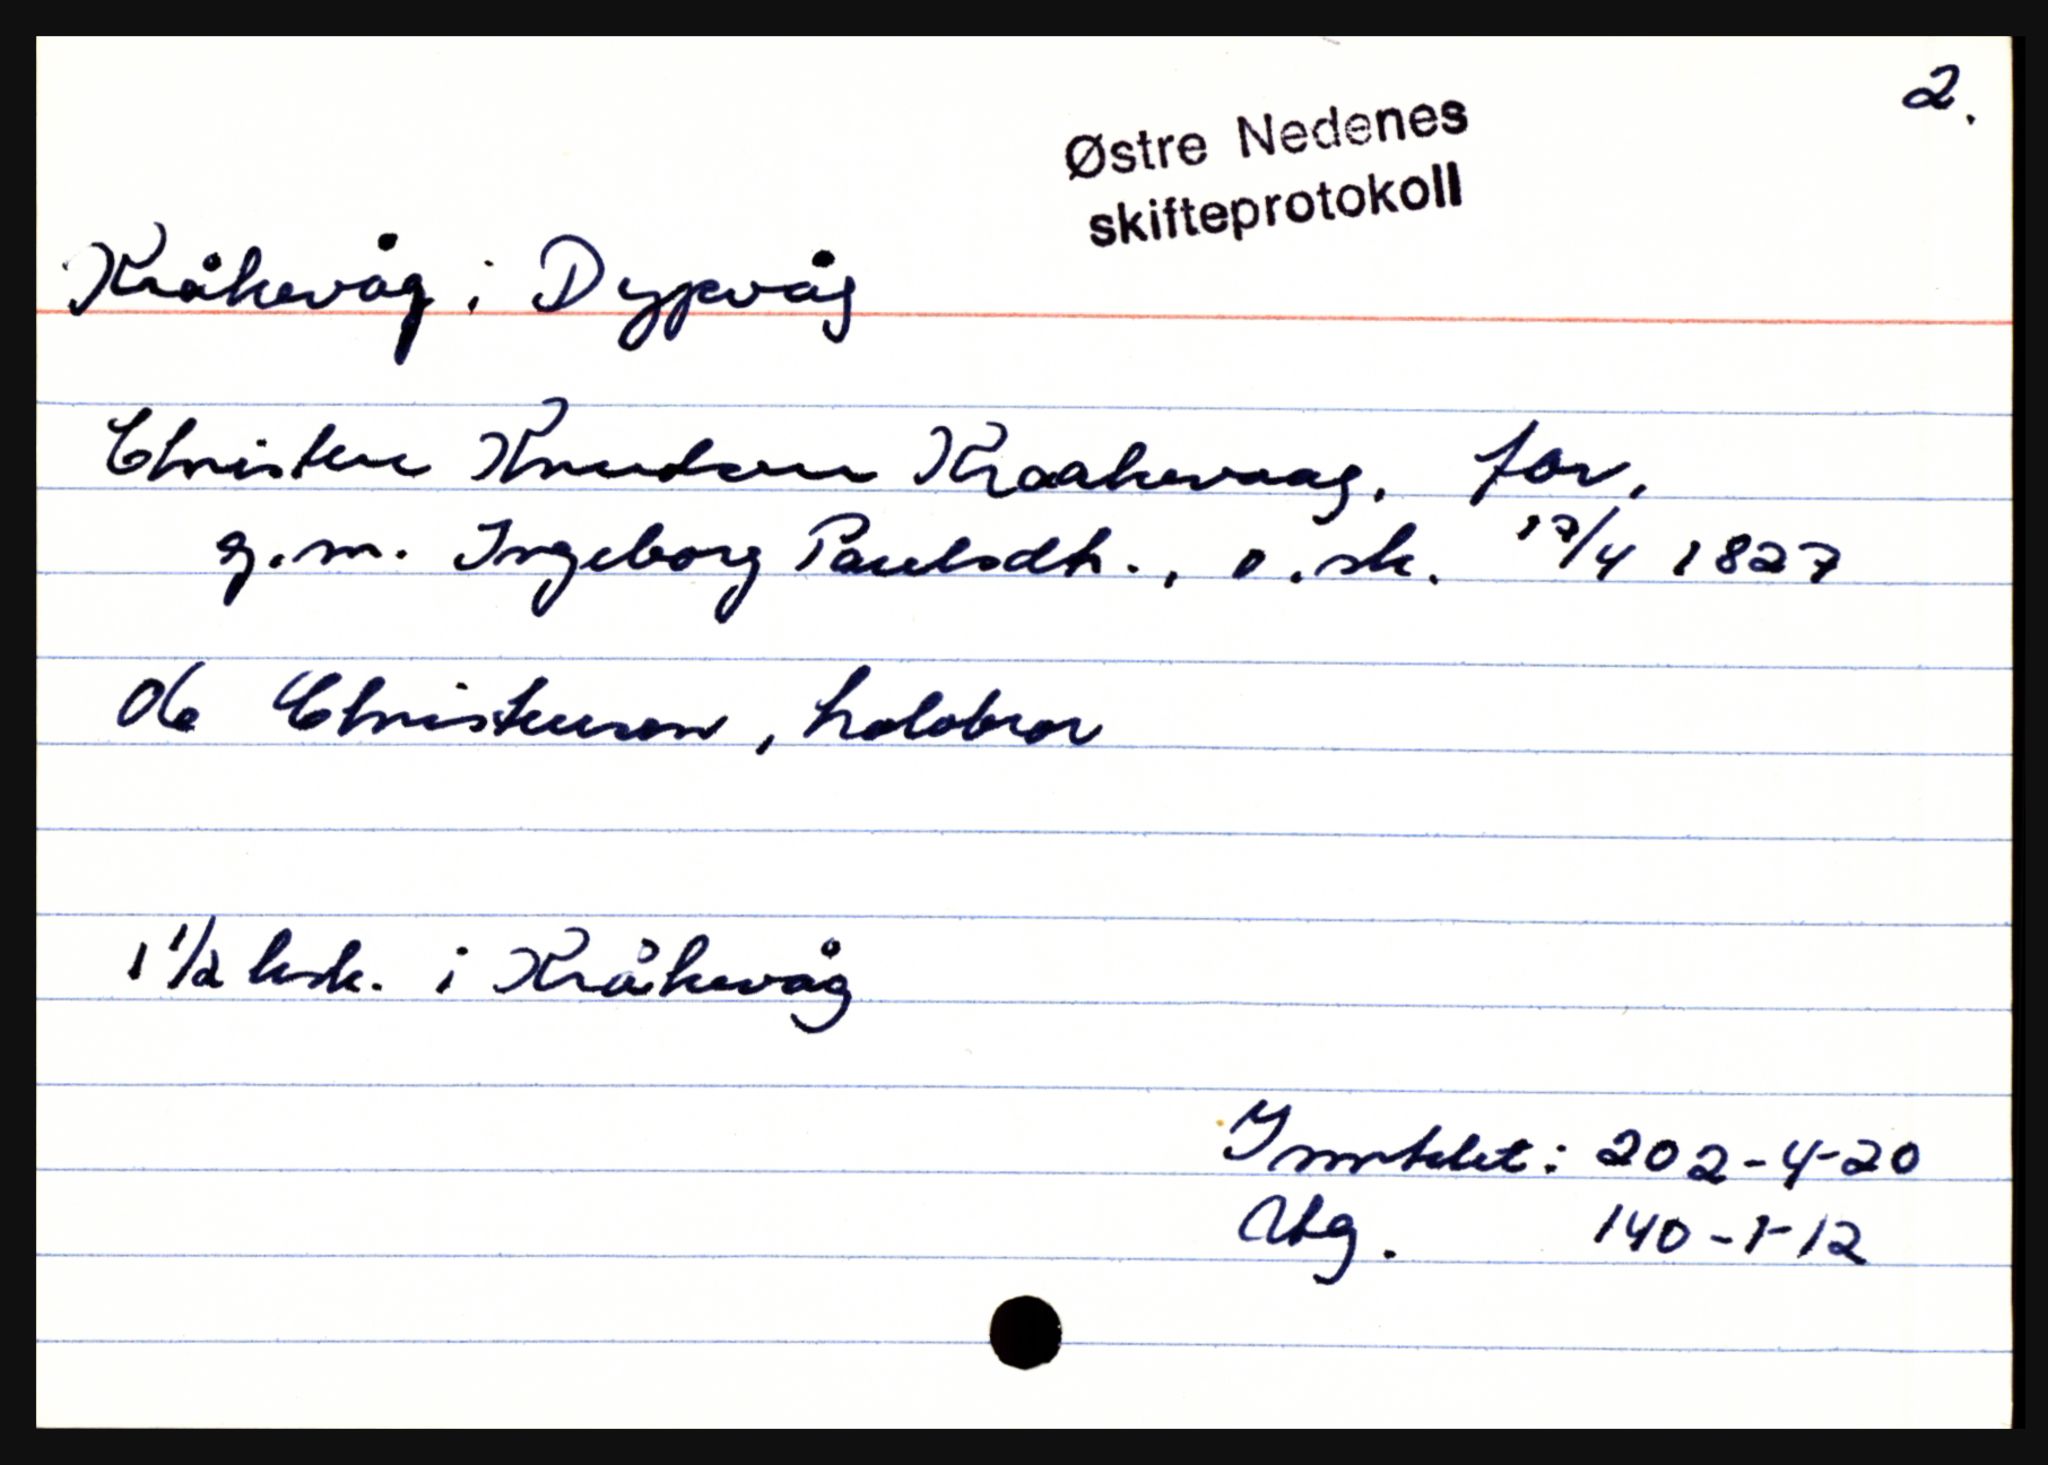 2.
Østre Nedenes
skifteprotokoll
Kråkevåg i Dypvåg
Christen Knudsen Kraakevaag, far,
g.m. Ingeborg Paulsdtr., o. sk. 17/4 1827
Ole Christensen, halvbror
1 1/2 ksk. i Kråkevåg
Inntekt: 202-4-20
Utg. 140-1-12